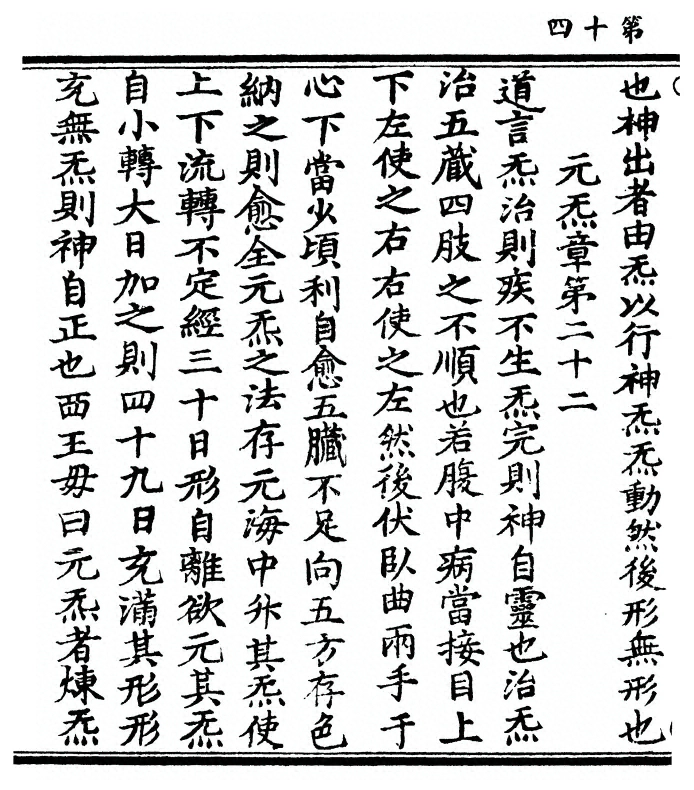 第十四
也神出者由炁以行神炁炁動然後形無形也
元炁章第二十二
道言炁治則疾不生炁完則神自靈也治炁
治五藏四肢之不順也若腹中病當接目上
下左使之右右使之左然後伏臥曲兩手于
心下當少頃利自愈五臟不足向五方存色
納之則愈全元炁之法存元海中升其炁使
上下流轉不定經三十日形自離欲元其炁
自小轉大日加之則四十九日充滿其形形
充無炁則神自正也西王毋曰元炁者煉炁